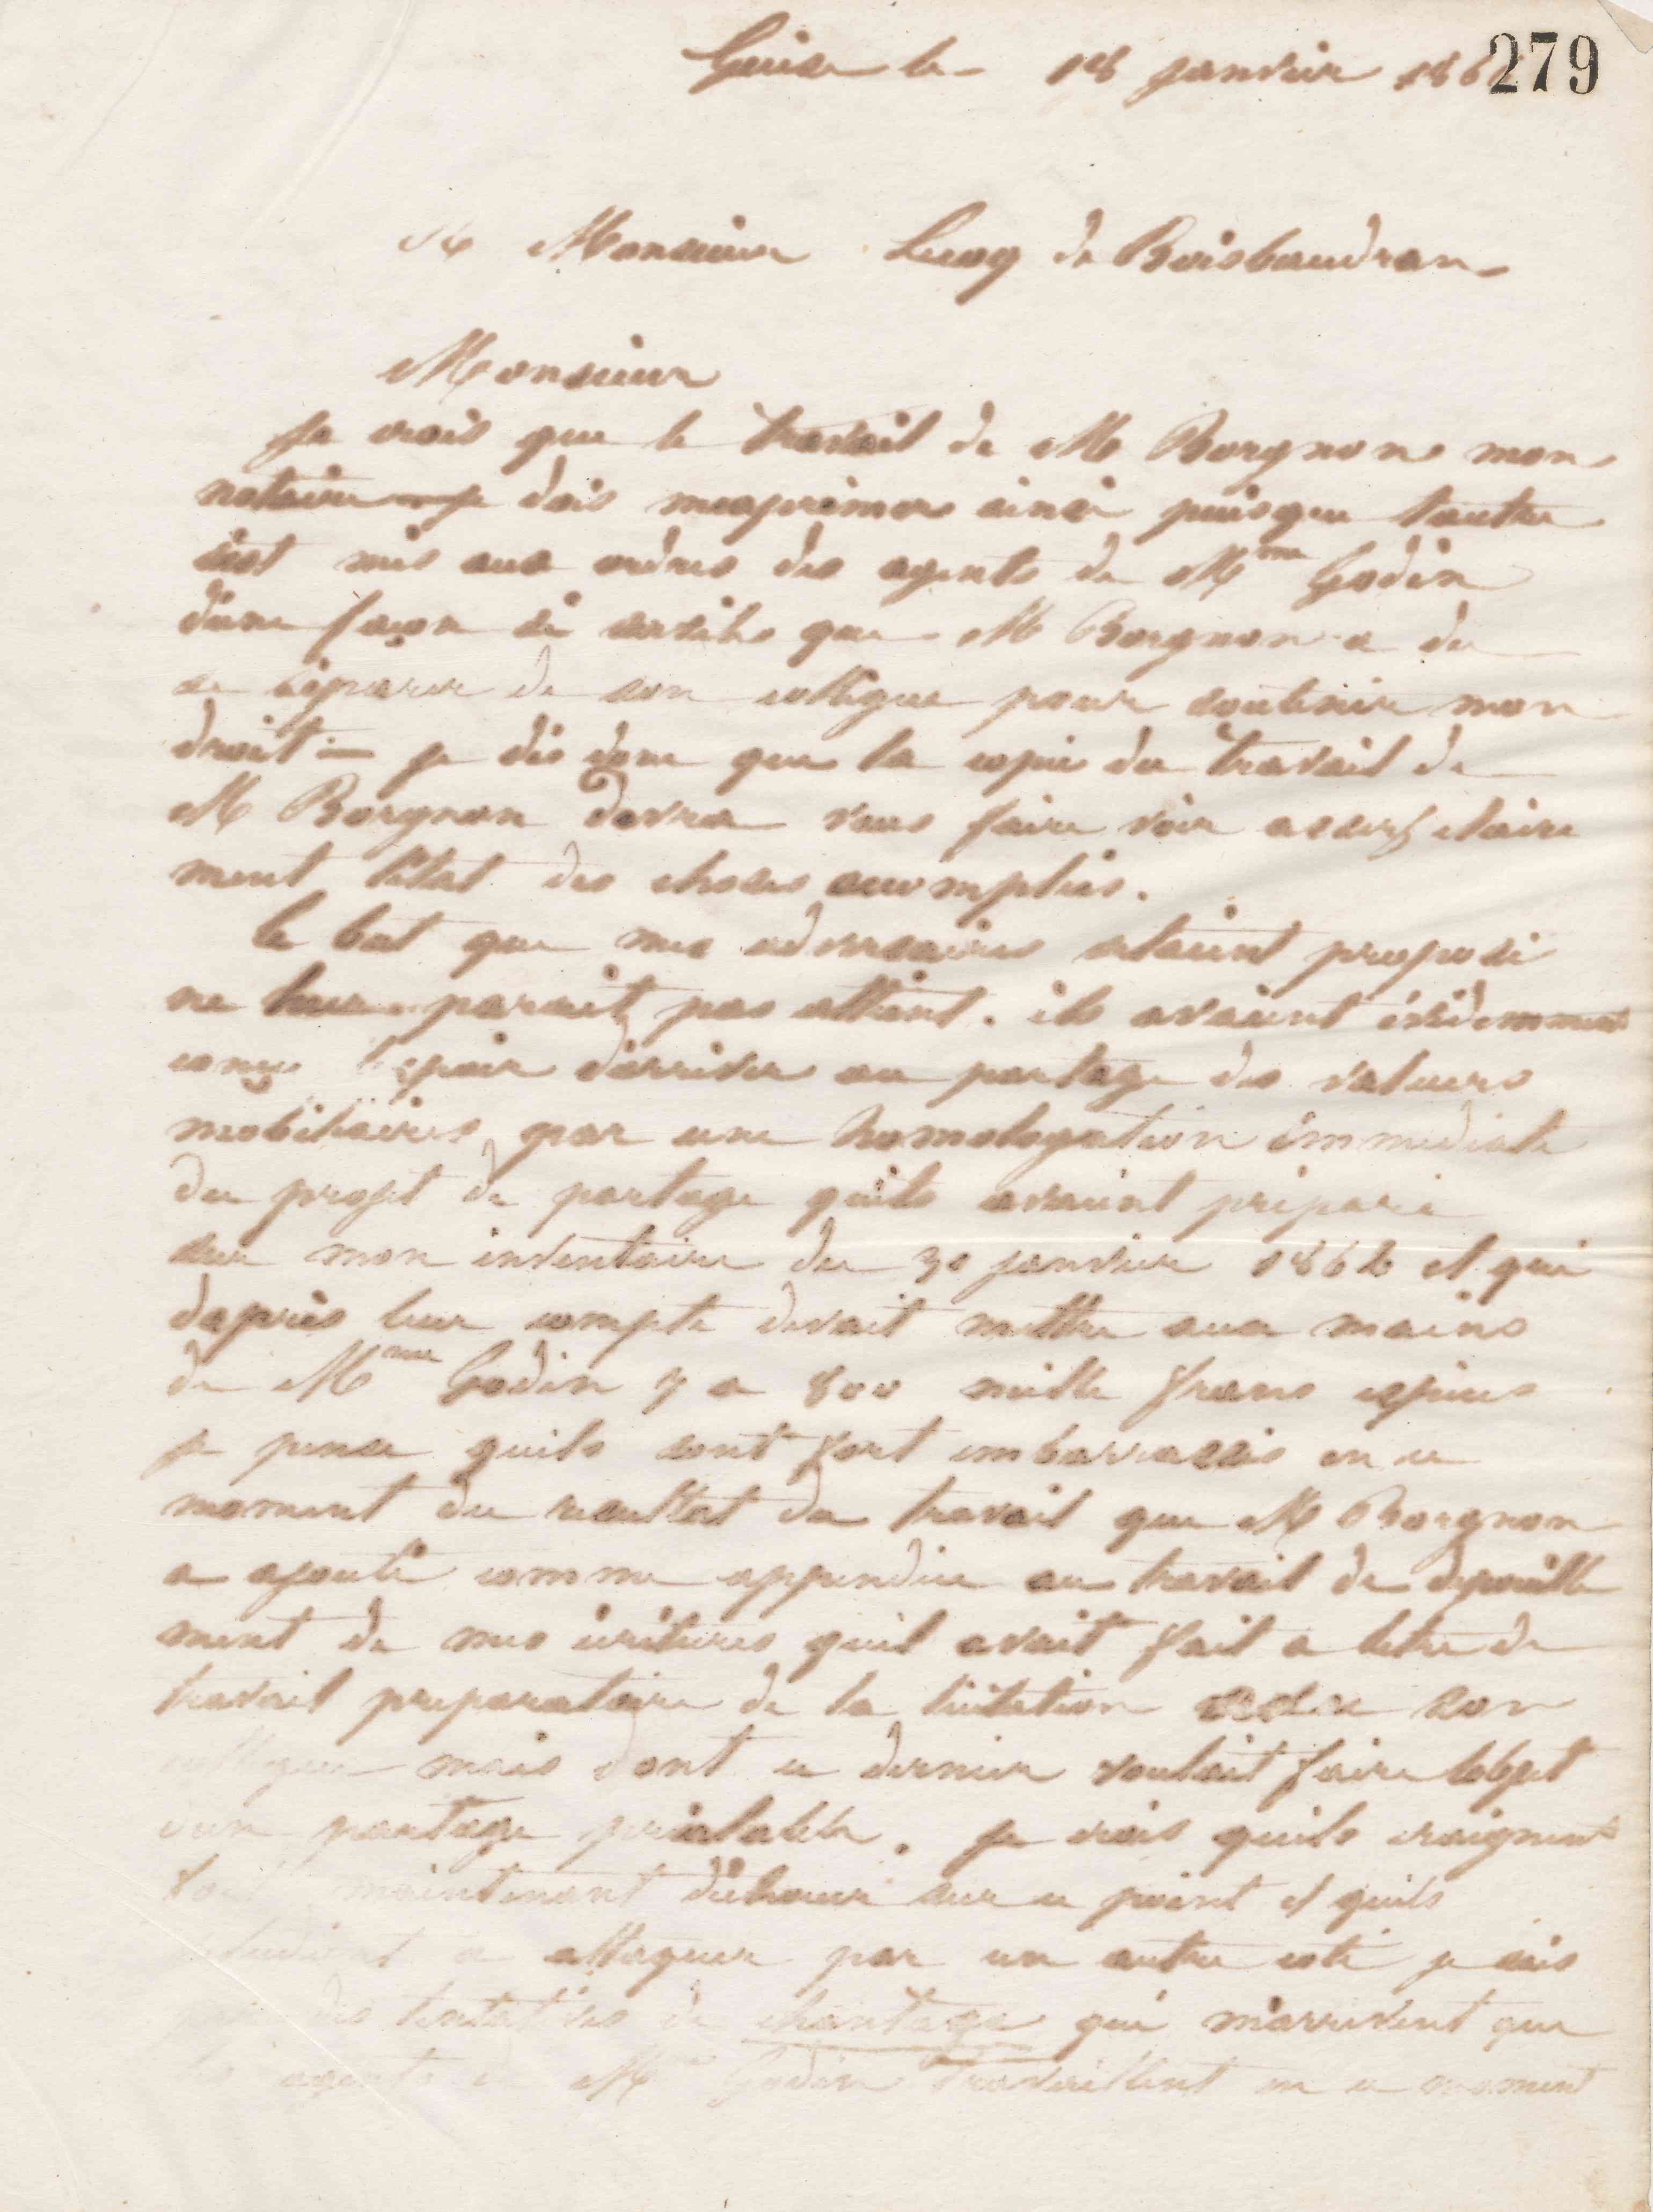 Guise le 18 janvier 186
279
A Monsieur Lecoq de Boisbaudran
Monsieur
Je crois que le travail de M Borgnon mon
notaire — je dois mexprimer ainsi puisque lautre
sest mis aux ordres des agents de Mme Godin
dune façon si servile que M Borgnon a du
se séparer de son collègue pour soutenir mon
droit — je dis donc que la copie du travail de
M Borgnon devra vous faire voir assez claire
ment létat des choses accomplies.
le but que mes adversaires sétaient proposé
ne leur parait pas atteint. ils avaient évidemment
conçu lespoir darriver au partage des valeurs
mobilières par une homologation immédiate
du projet de partage quils avaient préparé
sur mon inventaire du 30 janvier 1864 et qui
daprès leur compte devait mettre aux mains
de Mme Godin 7 a 800 mille francs espèces
je pense quils sont fort embarrassés en ce
moment du résultat du travail que M Borgnon
a ajouté comme appendice au travail de dépouille
ment de mes écritures quil avait fait a titre de
travail preparatoire de la licitation avec son
collègue mais dont ce dernier voulait faire lobjet
dun partage préalable. Je crois quils craignent
maintenant déchouer sur ce point et quils
étudient a attaquer par un autre coté je sais
par des tentatives de chantage qui marrivent que
les agents de Mme Godin travaillent en ce moment